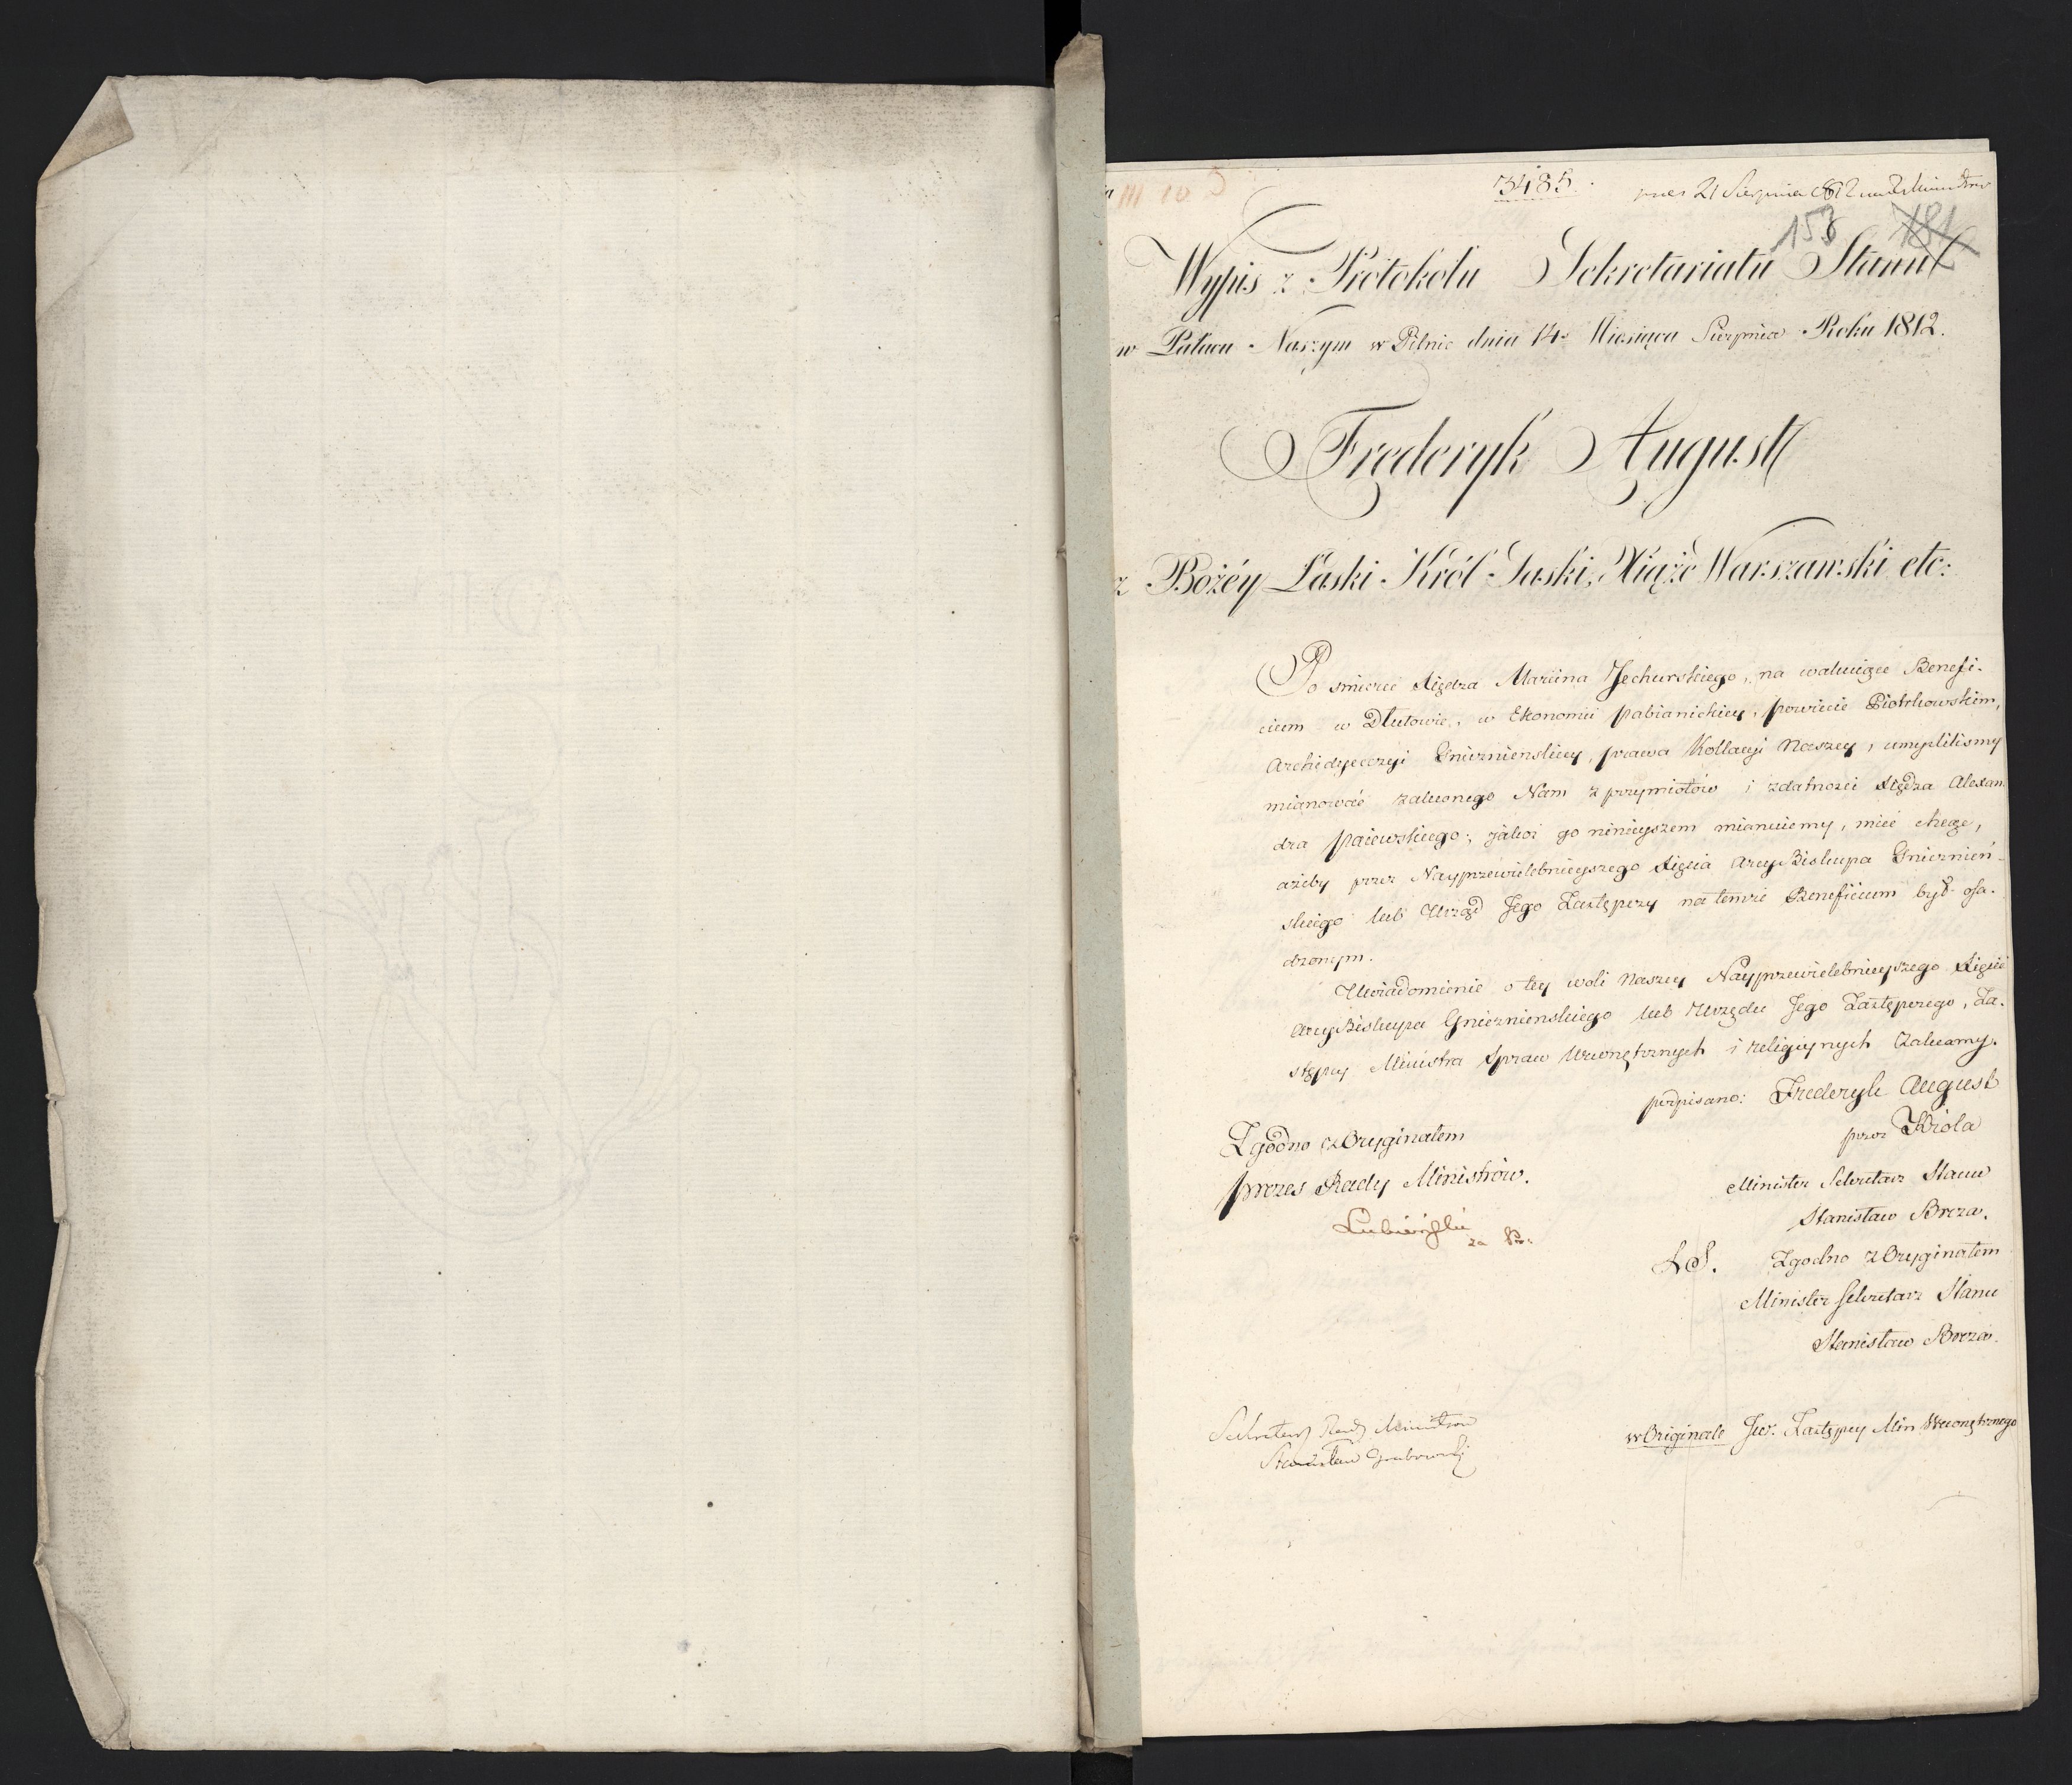 3485.
21 Sierpnia 1812
153 181
Wypis z Protokołu Sekretariatu Stanu
w Pałacu Naszym w Pilnic dnia 14. Miesiąca Sierpnia Roku 1812.
Frederyk August
z Bożéy Łaski Król Saski, Xiąże Warszawski etc:
Po śmierci Xiędza Marcina Jechurskiego, na wakuiące Benefi-
cium w Dłutowie, w Ekonomii Pabianickiey, powiecie Piotrkowskim,
Archidyecezyi Gnieznienskiey, prawa Kollacyi Naszey, umyslilismy
mianować zaleconego Nam z przymiotów i zdatności Xiędza Alexan
dra Paiewskiego; jakoż go ninieyszem mianuiemy, mieć chcąc,
ażeby przez Nayprzewielebnieyszego Xięcia ArcyBiskupa Gnieznień-
skiego lub Urząd Jego Zastępczy na temże Beneficium był osa-
dzonym.
Uwiadomienie o tey woli Naszey Nayprzewielebnieyszego Xięcia
ArcyBiskupa Gnieznienskiego lub Urzędu Jego Zastępczego, Za-
stępcy Ministra Spraw Wewnętrznych i Religiynych zalecamy.
podpisano: Frederyk August
przez Króla
Minister Sekretarz Stanu
Stanisław Breza.
L.S. Zgodno z Oryginałem
Minister Sekretarz Stanu
Stanisław Breza.
Zgodno z Oryginałem
Prezes Rady Ministrów.
Lubieński
za Pr:
Sekretarz Rady Ministrów
Stanisław Grabowski
w Originale Jw. Zastępcy Min Wewnętrznego